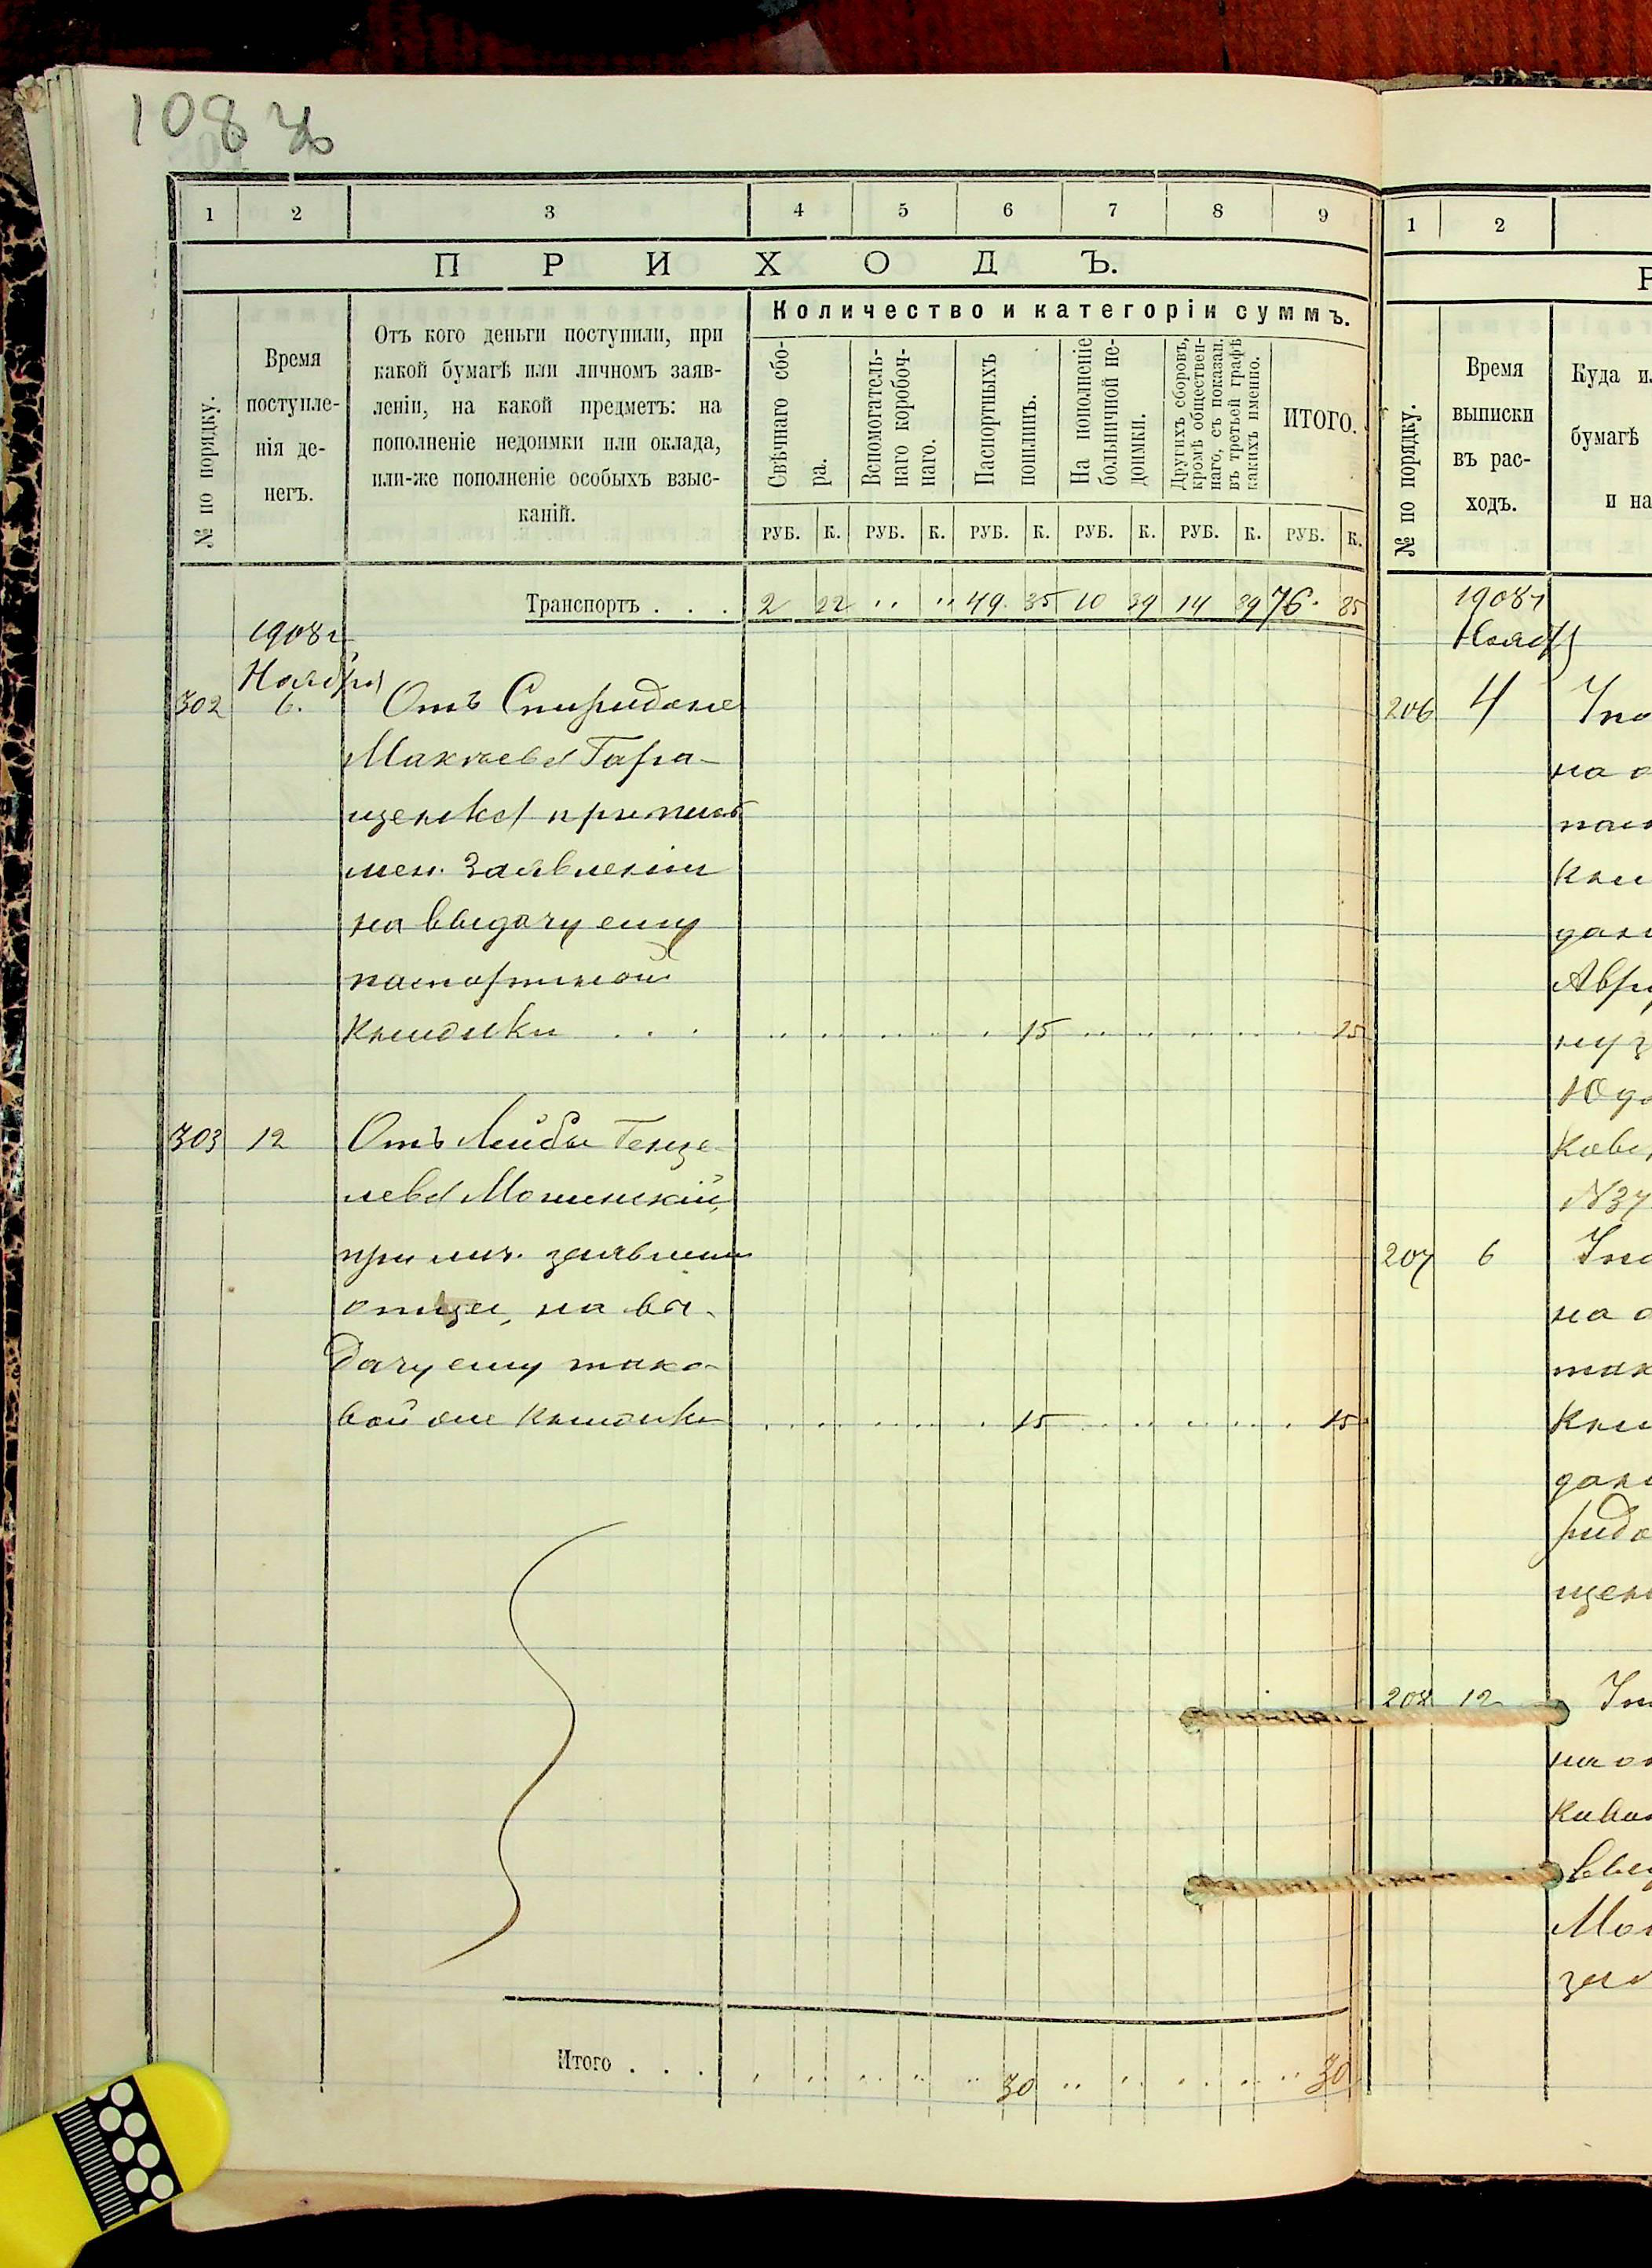 108
1 2 3 4 5 6 7 8 9
ПРИХОДЪ.
№ по порядку.
Время
поступле-
нія де-
негъ.
Отъ кого деньги поступили, при
какой бумагѣ или личномъ заяв-
леніи, на какой предметъ: на
пополненіе недоимки или оклада,
или-же пополненіе особыхъ взыс-
каній.
Количество и категоріи суммъ.
Свѣчнаго сбо-
ра.
Вспомогатель-
наго коробоч-
наго.
Паспортныхъ
пошлинъ.
На пополненіе
больничной не-
доимки.
Другихъ сборовъ,
кромѣ обществен-
наго, съ показан.
въ третьей графѣ
какихъ именно.
ИТОГО.
РУБ. К. РУБ. К. РУБ. К. РУБ. К. РУБ. К. РУБ. К.
Транспортъ . . . 2 22 " " 49 35 10 39 14 89 76 85
1908 г
Ноября
302 6. Отъ Спиридона
Гара-
щенка при пись
мен. заявленіи
на выдачу ему
паспортной
книжки . . . 15 15
303 12 Отъ Лейбы Генце-
лева
при лич. заявленіи
отца, на вы-
дачу ему тако-
вой же книжки 15 15
Итого . . . 30 30
1 2
№ по порядку.
Время
выписки
въ рас-
ходъ.
Куда и
бумагѣ
и на
1908 г
Нояб
206 4
на о
кни
дан
Авр
ну з
Юд
№37
207 6
на о
так
кни
дан
ридо
щен
208 12
на о
Мо